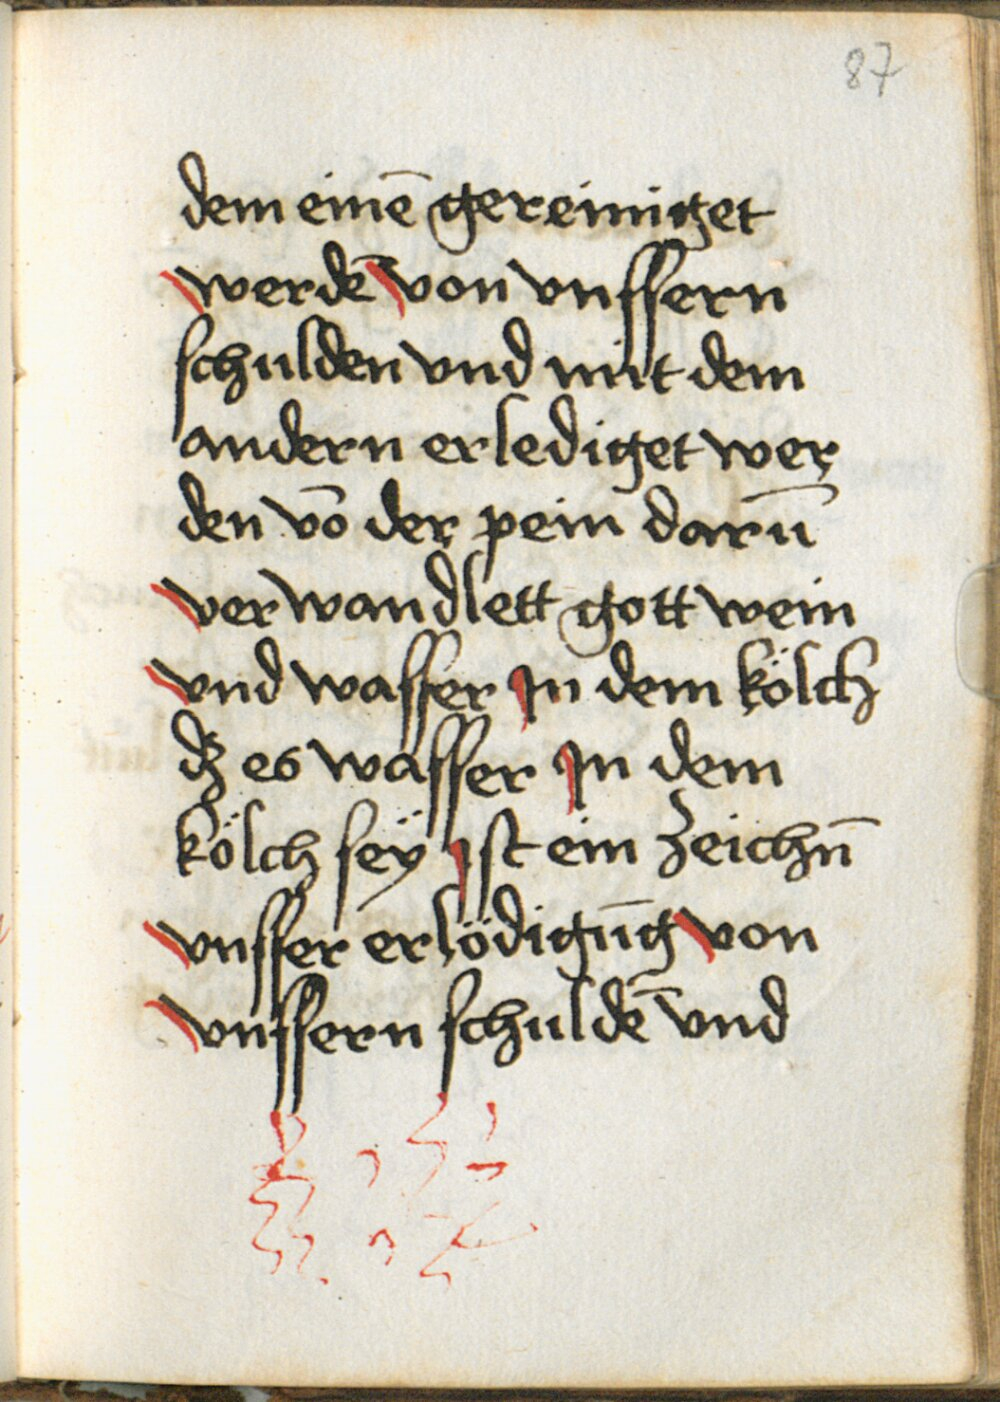 87
dem einē gereiniget
werdē von vnssern
schulden vnd mit dem
andern erlediget wer
den vō der pein darū
verwandlett gott wein
vnd wasser jn dem kölch
dʒ es wasser jn dem
kölch seÿ ist ein zeichn̄
vnsser erlödigūg von
vnssern schuldē vnd